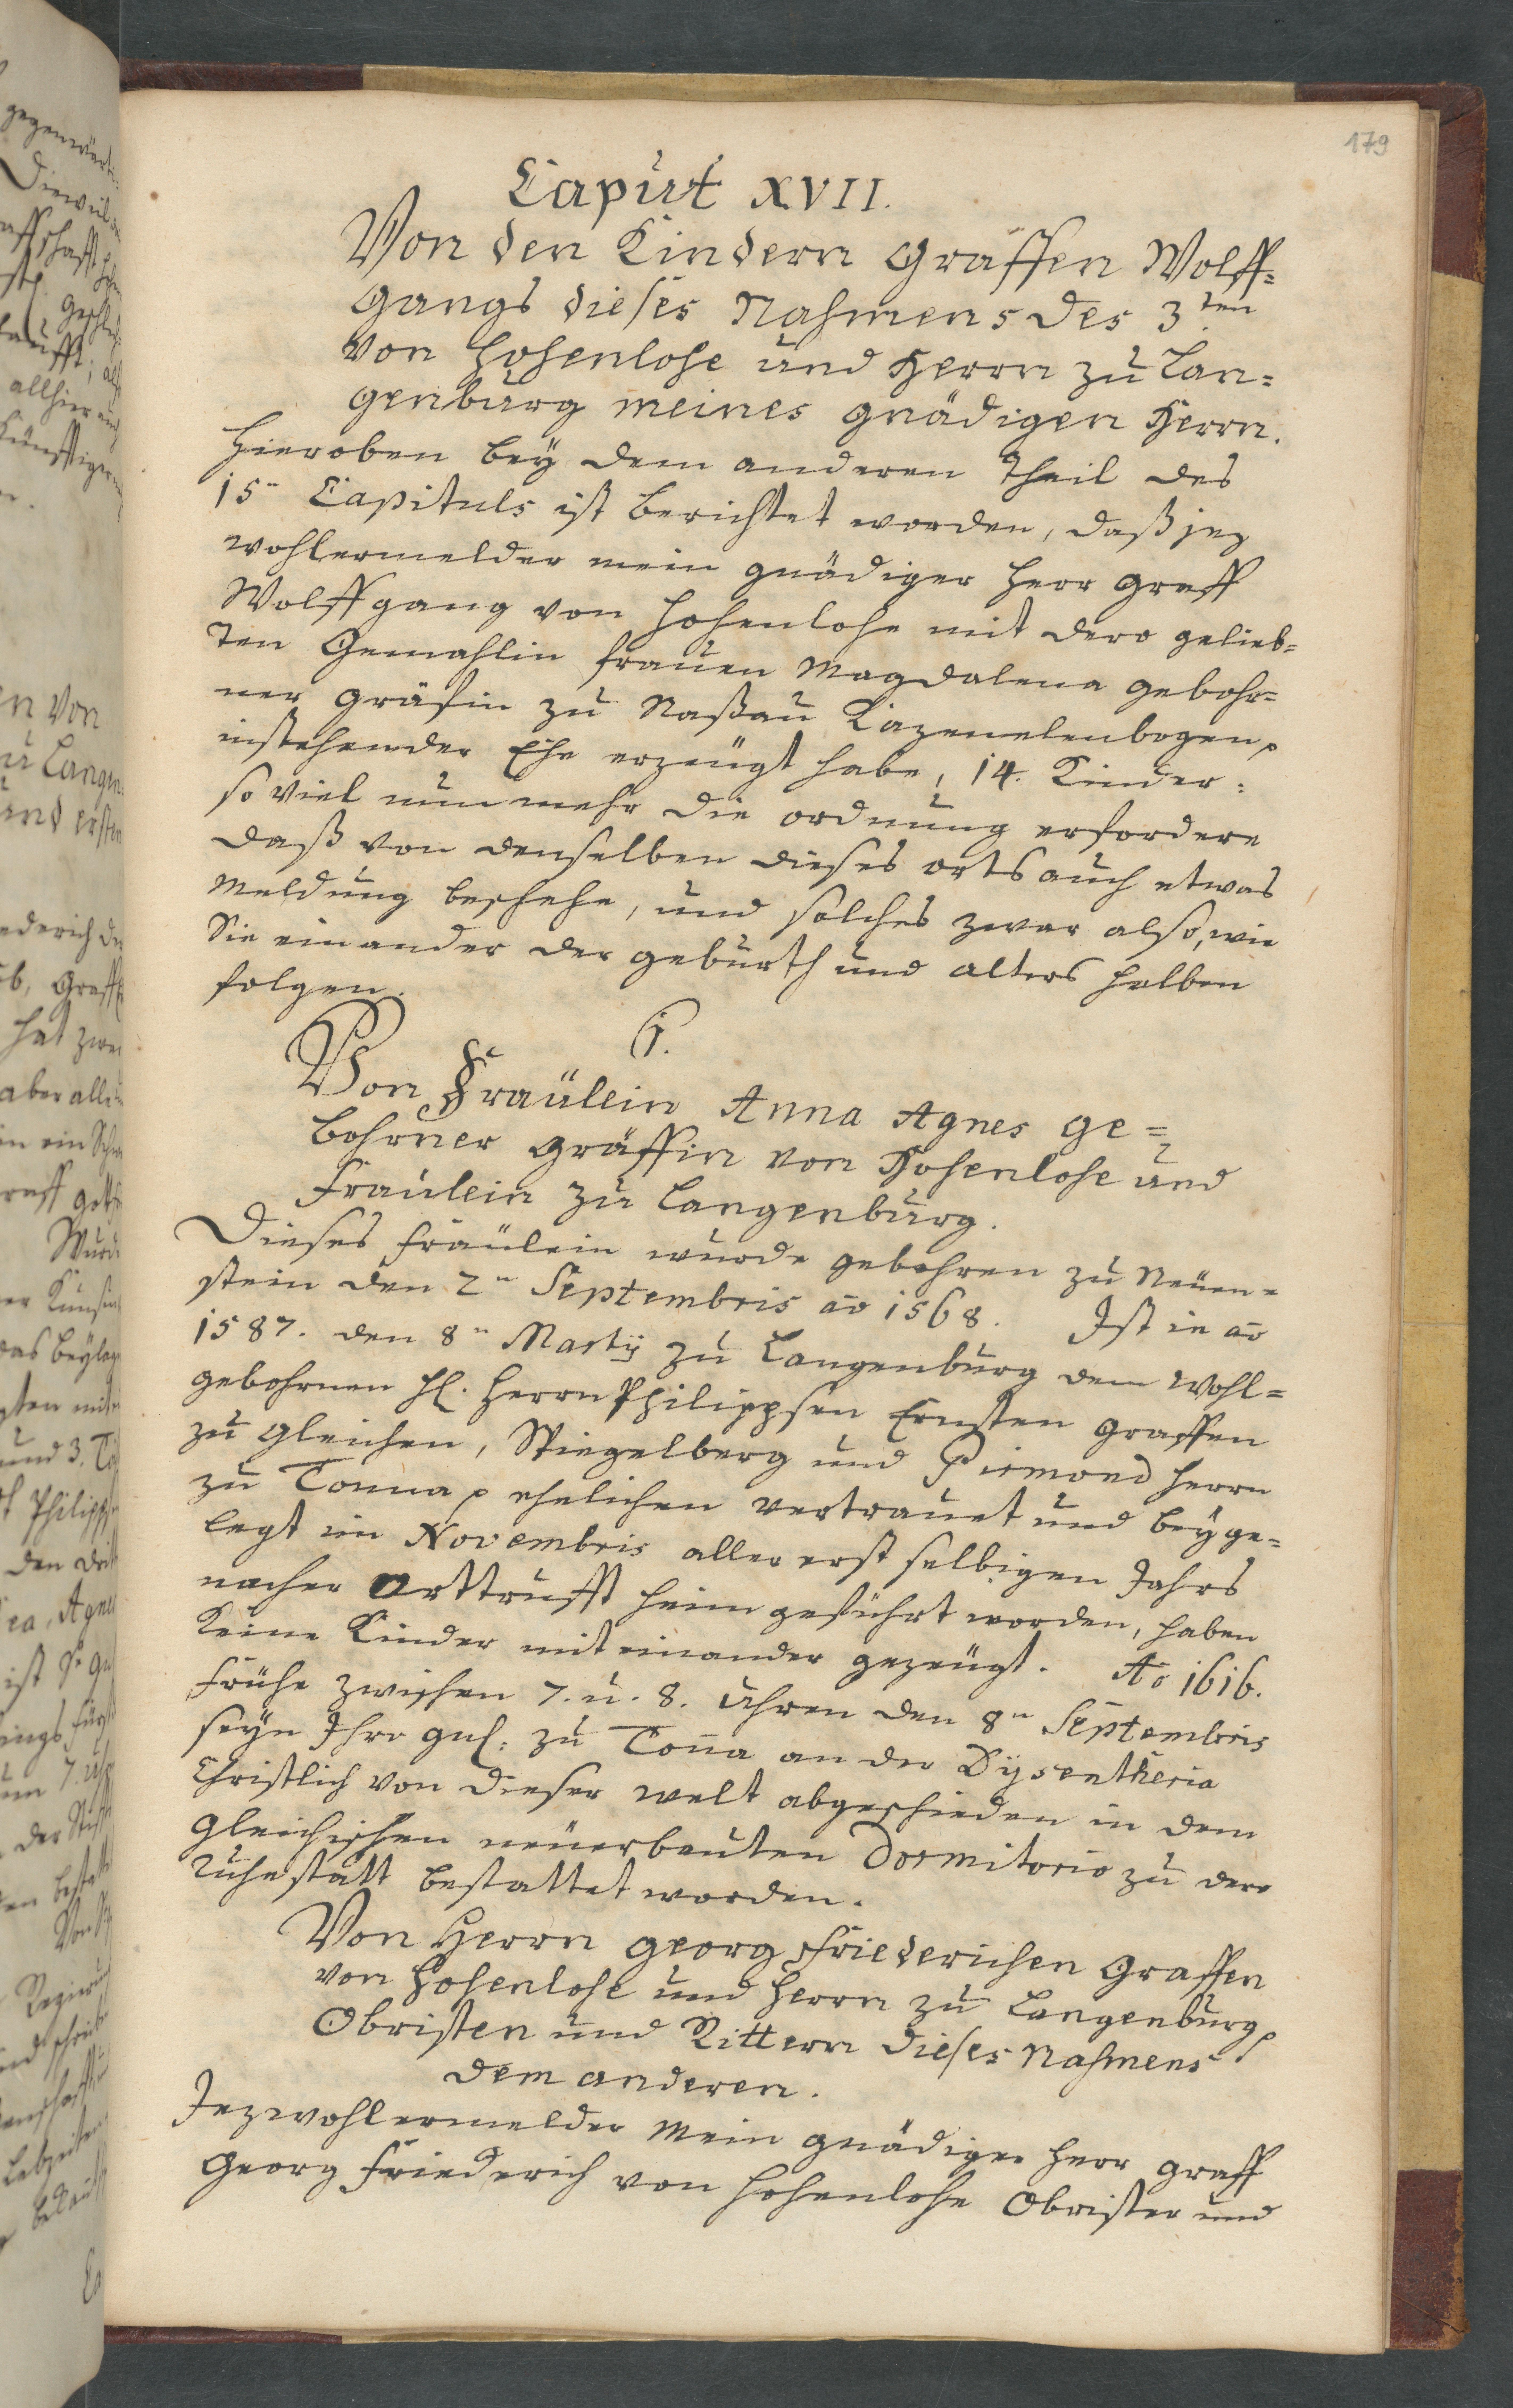 179
Caput XVII.
Von den Kindern Gräffen Wolff-
gangs dieses Nahmens des 3ten
von Hohenlohe und Herrn zu Lan-
genburg meines gnädigen Herrn.
Hieroben bey dem anderen Theil des
15n Capituls ist berichtet worden, daß jez
wohlermelder mein gnädiger Herr Graff
Wolffgang von Hohenlohe mit dero gelieb-
ten Gemahlin Frauen Magdalena gebohr-
ner Gräfin zu Naßau Kazenelenbogen
instehender Ehe erzeugt habe, 14. Kinder:
so viel nunmehr die ordnung erfordere
daß von denselben dieses orts auch etwas
Meldung beschehe, und solches zwar also, wie
Sie einander der geburth und alters halben
folgen.
1.
Von Fraülein Anna Agnes ge-
bohrner Gräffin von Hohenlohe und
Fraülein zu Langenburg.
Dieses Fräulein wurde gebohren zu Neuen-
stein den 2n Septembris ao 1568. Ist in ao
1587. den 8n Martij zu Langenburg dem Wohl-
gebohrnen H. Herrn Philippsen Ernsten Graffen
zu Gleichen, Spiegelberg und Pirmond Herrn
zu Tonna ehelichen vertrauet und beyge-
legt im Novembris aller erst selbigen Jahrs
nacher Orttrufft heim geführt worden, haben
Keine Kinder miteinander gezeugt. Ao 1616.
Frühe zwischen 7. u. 8. Uhren den 8n Septembris
seyn Ihre gnl: zu Tona an der Dysentheria
Christlich von dieser welt abgeschieden in dem
Gleichischen neuerbauten Dormitorio zu dero
Ruhestatt bestattet worden.
Von Herrn Georg Friederichen Graffen
von Hohenlohe und Herrn zu Langenburg
Obristen und Rittern dieses Nahmens
dem anderen.
Jezwohlermelder Mein gnädiger Herr Graff
Georg Friederich von Hohenlohe Obrister und